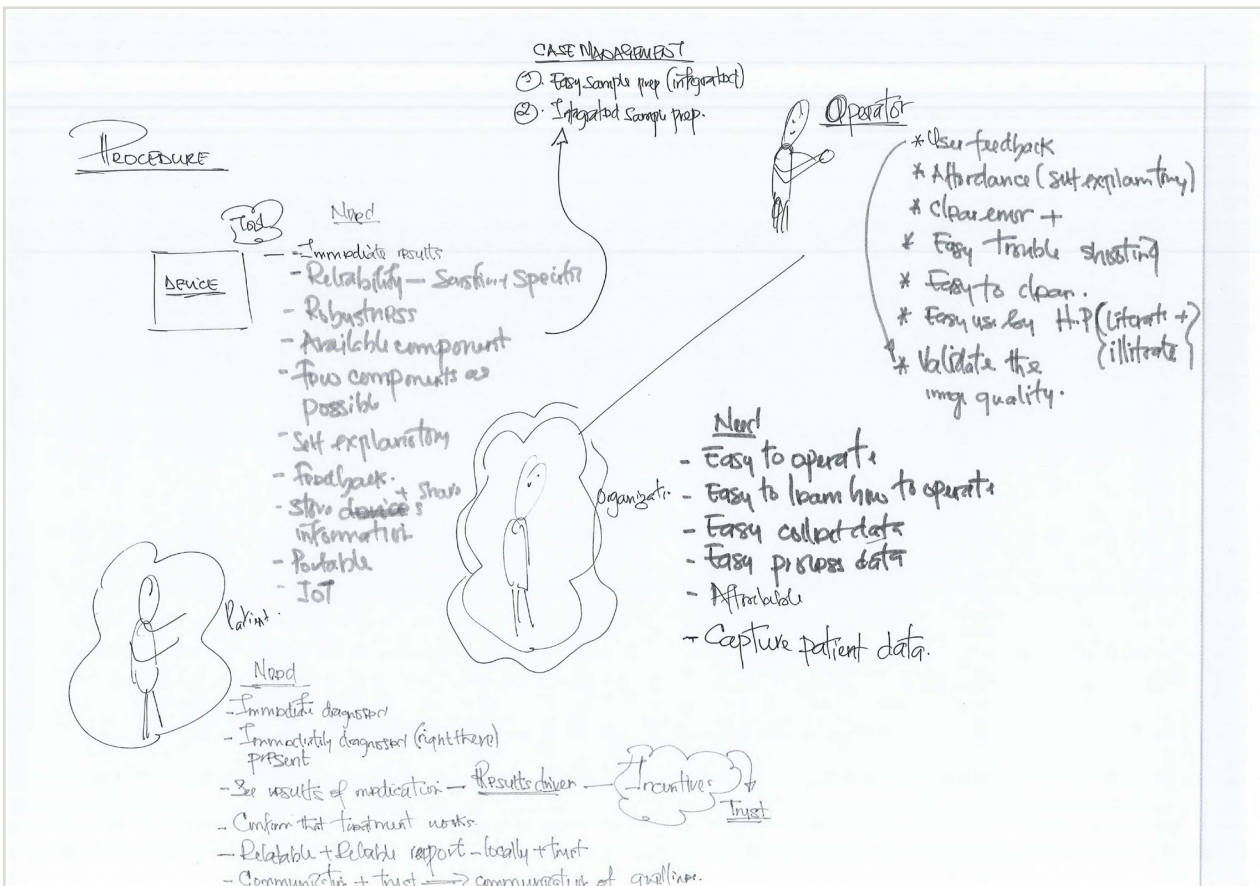 CASE MANAGEMENT
1. Easy sample prep (integrated)
2. Integrated sample prep.
PROCEDURE
Operator
* User feedback
* Affordance (self explanatory)
* Clear error +
* Easy trouble shooting
* Easy to clean.
* Easy use by H.P (literate +
illitrate
* Validate the
image quality.
Test
DEVICE
Need
- Immediate results
- Reliability — Sensitive + Specific
- Robustness
- Available component
- Few components as
possible
- Self explanatory
- Feedback.
- Store device + Share
information
- Portable
- IoT
Organizati.
Need
- Easy to operate
- Easy to learn how to operate
- Easy collect data
- Easy process data
- Affordable
- Capture patient data.
Patient.
Need
- Immediate diagnosed
- Immediately diagnosed (right there)
present
- See results of medication — Results driven — Incentives
Trust
- Confirm that treatment works.
- Relatable + Reliable report - locally + trust
- Communication + trust → communication of